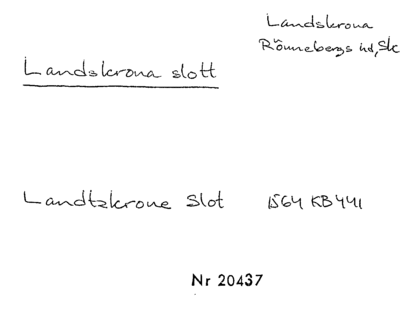 Landskrona
Rönnebergs hd, Sk
Landskrona slott
Landtzkrone Slot 1564 KB 441
Nr 20437